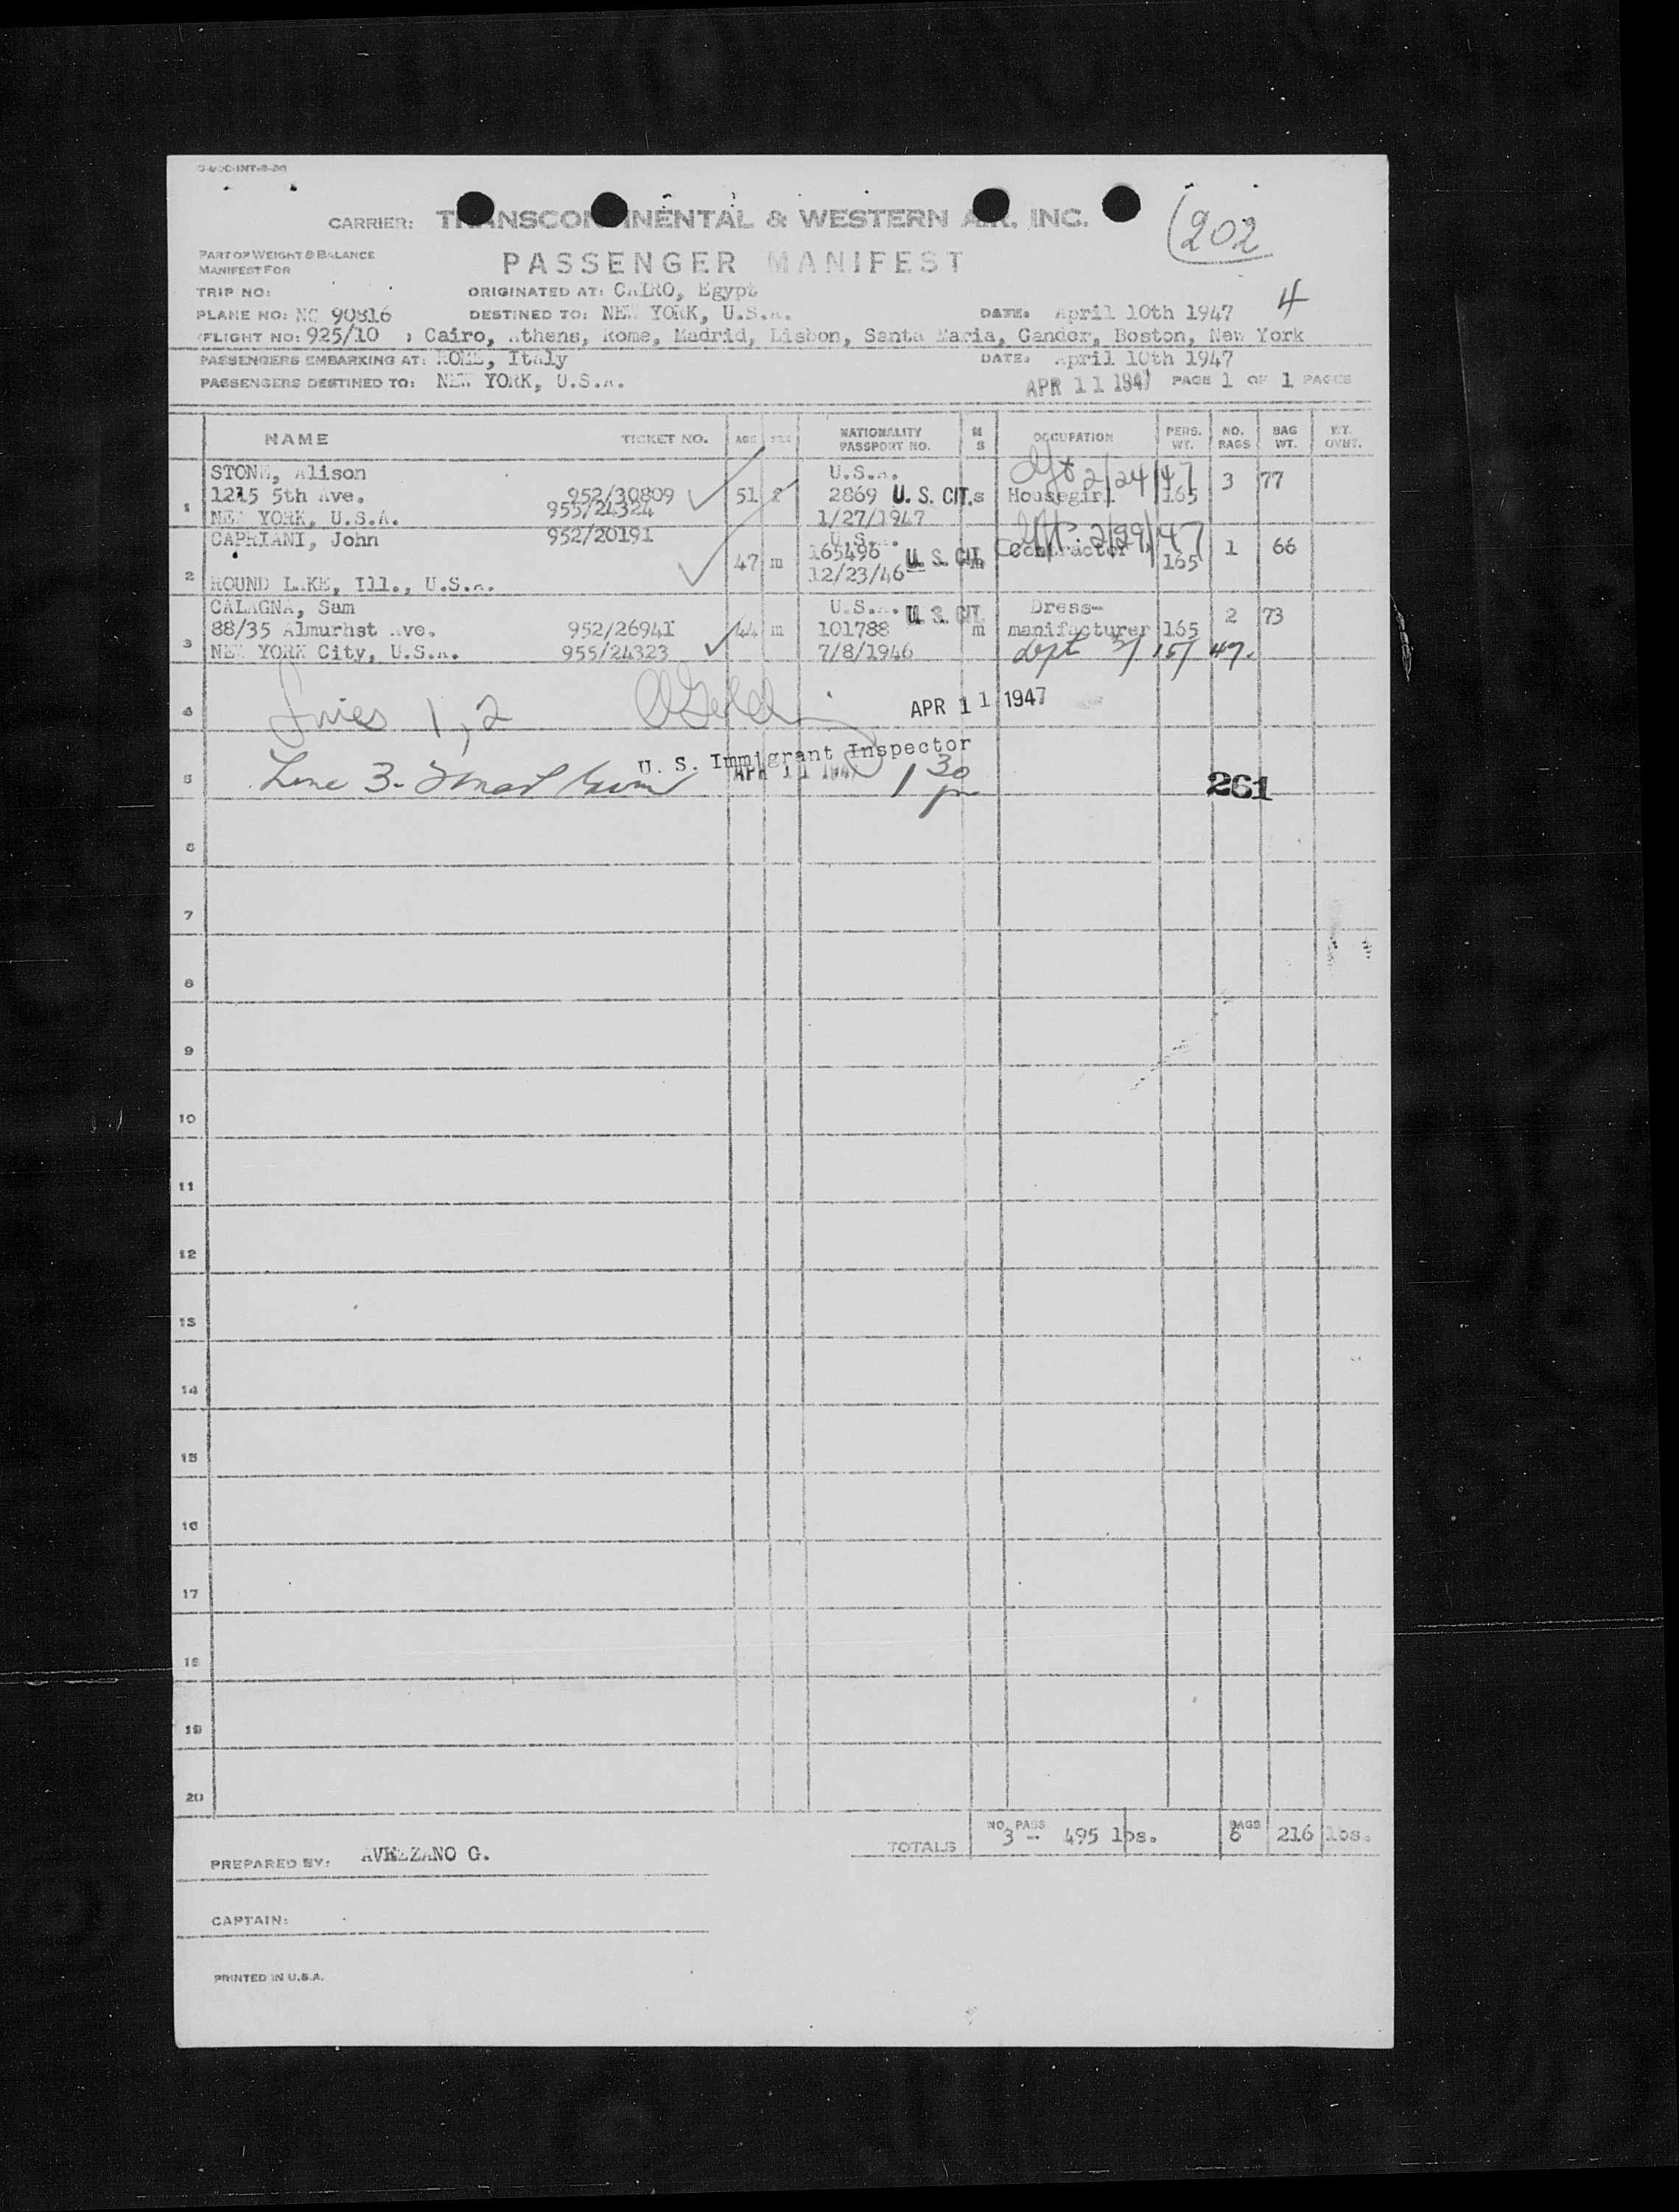 CARRIER: TRANSCONTINENTAL & WESTERN AIR. INC.
(202
PART OF WEIGHT & BALANCE
MANIFEST FOR
PASSENGER MANIFEST
TRIP NO:
ORIGINATED AT: CAIRO, Egypt
4
PLANE NO: NC 90816
DESTINED TO: NEW YORK, U.S.A.
DATE: April 10th 1947
FLIGHT NO: 925/10 , Cairo, Athens, Rome, Madrid, Lisbon, Santa Maria, Gander, Boston, New York
PASSENGERS EMBARKING AT: ROME, Italy
DATE: April 10th 1947
PASSENGERS DESTINED TO: NEW YORK, U.S.A.
APR 11 1947 PAGE 1 OF 1 PAGES
NAME TICKET NO. AGE SEX NATIONALITY PASSPORT NO. M S OCCUPATION PERS. WT. NO. BAGS BAG WT. WT. OVHT.
STONE, Alison U.S.A. 2/24/47
1215 5th Ave. 952/30809 51 f 2869 U. S. CIT. s Housegirl 165 3 77
1 NEW YORK, U.S.A. 955/24324 1/27/1947
CAPRIANI, John 952/20191 U.S.A. 2/29/47
47 m 165496 U. S. CIT. m Contractor 165 1 66
2 ROUND LAKE, Ill., U.S.A. 12/23/46
CALAGNA, Sam U.S.A. U. S. CIT. Dress-
88/35 Almurhst Ave. 952/26941 44 m 101788 m manifacturer 165 2 73
3 NEW YORK City, U.S.A. 955/24323 7/8/1946 dept 3/15/47.
4 Lines 1, 2 APR 11 1947
U. S. Immigrant Inspector
5 Line 3- APR 11 1947 1 30 pm 261
6
7
8
9
10
11
12
13
14
15
16
17
18
19
20
TOTALS NO. PASS 3 - 495 lbs. BAGS 6 216 lbs.
PREPARED BY: AVEZZANO G.
CAPTAIN:
PRINTED IN U.S.A.